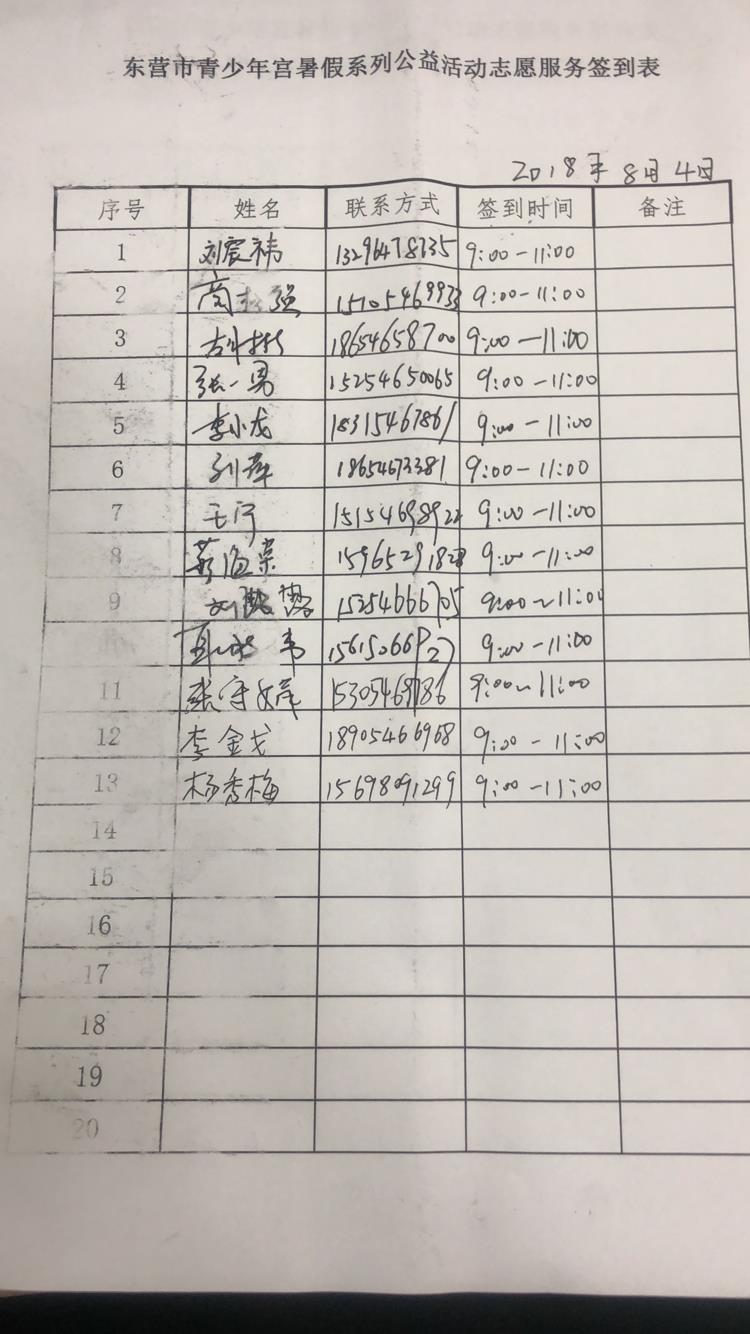 东营市青少年宫暑假系列公益活动志愿服务签到表
2018年 8月 4日
序号 姓名 联系方式 签到时间 备注
1 刘宸祎 13296478735 9:00-11:00
2 商 强 15105469933 9:00-11:00
3 18654658700 9:00-11:00
4 张一男 15254650065 9:00-11:00
5 李小龙 18315467861 9:00-11:00
6 孙萍 18654673381 9:00-11:00
7 王宁 15154698922 9:00-11:00
8 15965291828 9:00-11:00
9 刘 15254666705 9:00~11:00
9:00-11:00
11 张 15305469786 9:00~11:00
12 李金戈 18905466968 9:00-11:00
13 杨秀梅 15698091299 9:00-11:00
14
15
16
17
18
19
20